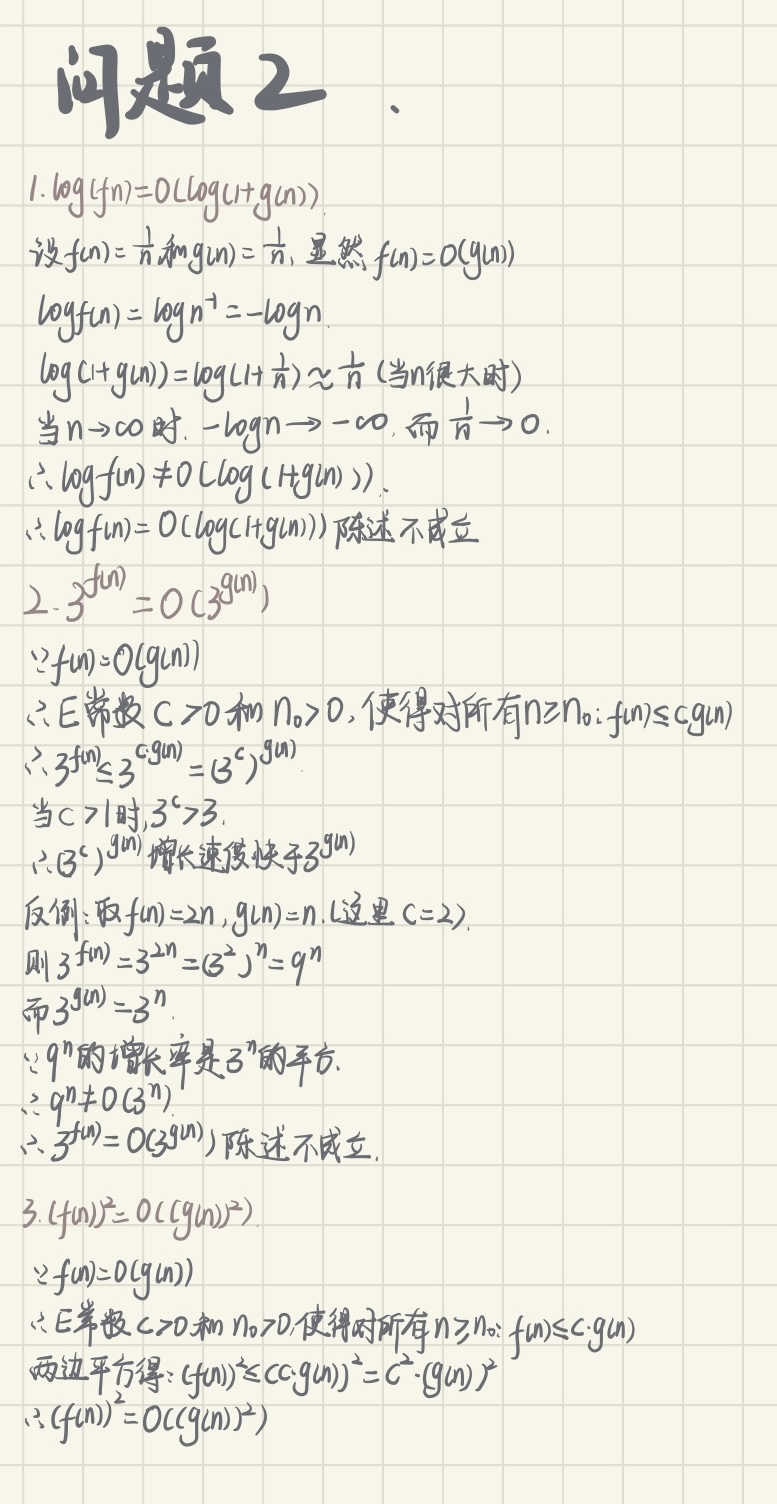 问题2.
1. log(fn)=O(log(1+g(n))
设f(n)=1/n和g(n)=1/n, 显然f(n)=O(g(n))
logf(n)=logn⁻¹=-logn.
log(1+g(n))=log(1+1/n)≈1/n (当n很大时)
当n→∞时, -logn→-∞, 而1/n→0.
∴logf(n)≠O(log(1+g(n))).
∴logf(n)=O(log(1+g(n)))陈述不成立
2. 3^f(n)=O(3^g(n))
∵f(n)=O(g(n))
∴E常数C>0和n₀>0,使得对所有n≥n₀:f(n)≤cg(n)
∴3^f(n)≤3^(c·g(n))=(3^c)^g(n).
当c>1时,3^c>3.
∴(3^c)^g(n)增长速度快于3^g(n)
反例:取f(n)=2n,g(n)=n.(这里C=2).
则3^f(n)=3^2n=(3²)^n=9^n
而3^g(n)=3^n.
∵9^n的增长率是3^n的平方.
∴9^n≠O(3^n)
∴3^f(n)=O(3^g(n))陈述不成立.
3.(f(n))²=O((g(n))²).
∵f(n)=O(g(n))
∴E常数C>0和n₀>0,使得对所有n≥n₀:f(n)≤c·g(n)
两边平方得:(f(n))²≤(c·g(n))²=C²·(g(n))²
∴(f(n))²=O((g(n))²)